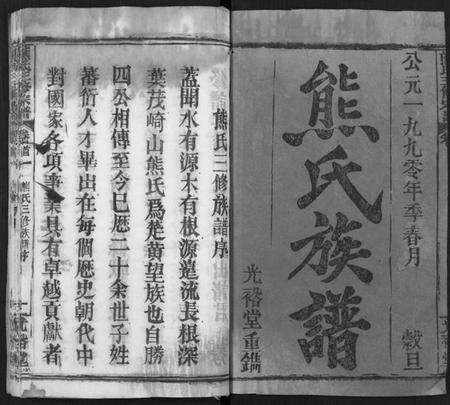 公元一九九零年季春月 穀旦
熊氏族譜
光裕堂重鐫
熊氏三修族譜序
蓋聞水有源木有根源遠流長根深
葉茂崎山熊氏為楚黄望族也自勝
四公相傳至今已歷二十余世子姓
蕃衍人才畢出在每個歷史朝代中
對國家各項事業具有卓越貢獻者
熊氏三修族譜序